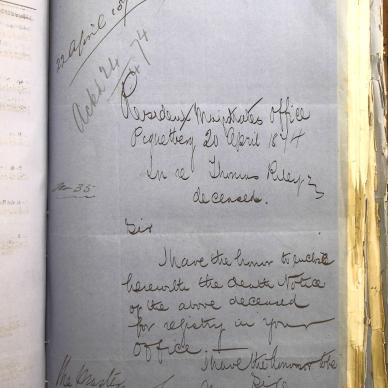 22 April 18
Ackd 24
4/74
Resident Magistrates Office
Piquetberg 20 April 1874
In re Thomas Riley
deceased.
No 35
Sir
I have the honor to enclose
herewith the Death Notice
of the above deceased
for registry in your
Office
I have the honour to be
The Master
Sir